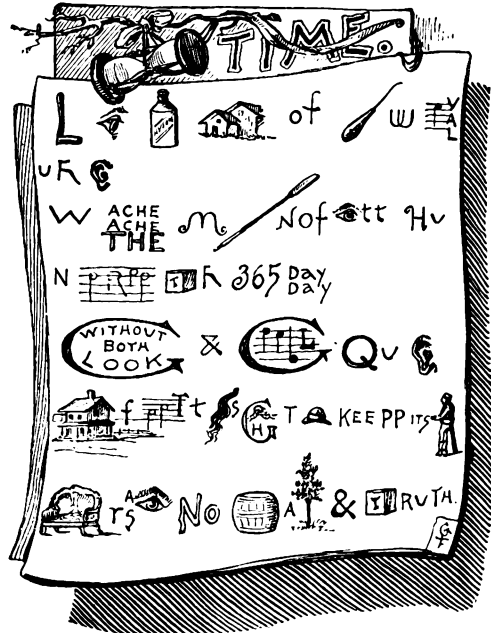 TIME.
L of W VAL
UR
W ACHE ACHE THE M N of tt HU
N T R 365 Day Day
C WITHOUT BOTH LOOK & G QU
f t s C H T KEE PP ITS
rs A No A & T RUTH.